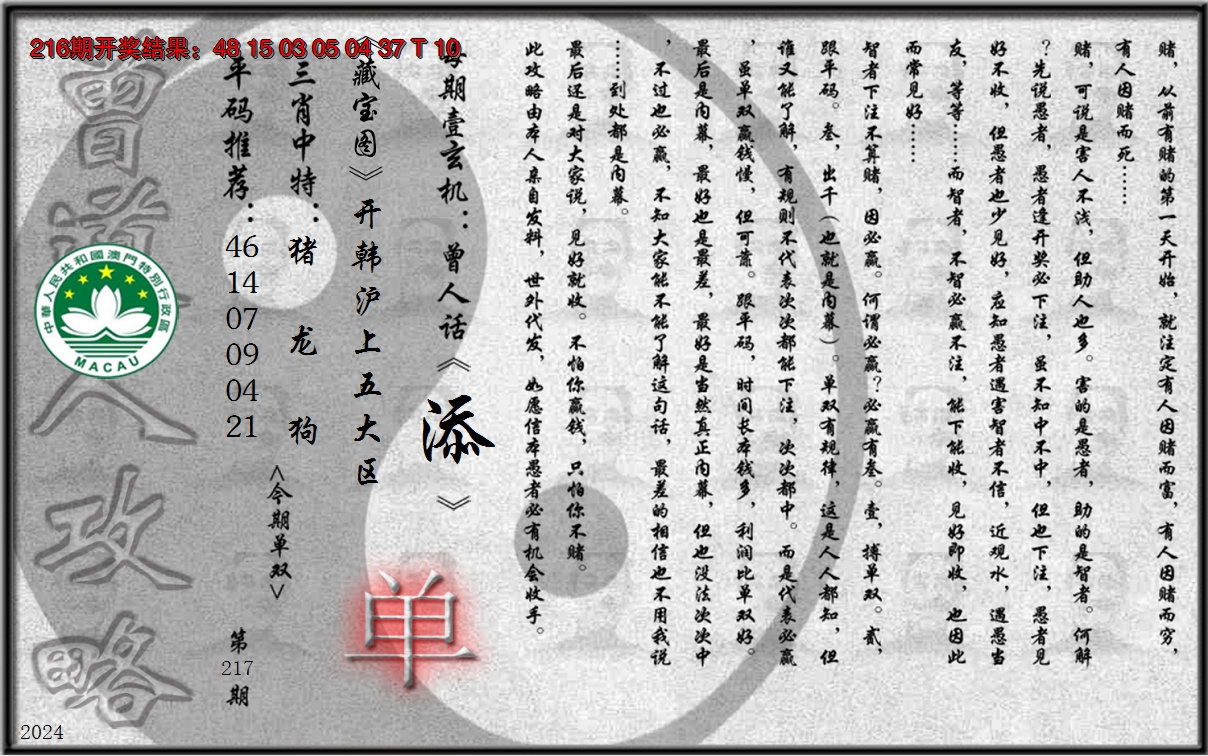 216期开奖结果：48 15 03 05 04 37 T 10
赌，从前有赌的第一天开始，就注定有人因赌而富，有人因赌而穷，
有人因赌而死……
赌，可说是害人不浅，但助人也多。害的是愚者，助的是智者。何解
？先说愚者，愚者逢开奖必下注，虽不知中不中，但也下注，愚者见
好不收，但愚者也少见好，应知愚者遇害智者不信，近观水，遇愚当
友，等等……而智者，不智必赢不注，能下能收，见好即收，也因此
而常见好……
智者下注不算赌，因必赢。何谓必赢？必赢有叁。壹，搏单双。贰，
跟平码。叁，出千（也就是内幕）。单双有规律，这是人人都知，但
谁又能了解，有规则不代表次次都能下注，次次都中。而是代表必赢
，虽单双赢钱慢，但可靠。跟平码，时间长本钱多，利润比单双好。
最后是内幕，最好也是最差，最好是当然真正内幕，但也没法次次中
，不过也必赢，不知大家能不能了解这句话，最差的相信也不用我说
……到处都是内幕。
最后还是对大家说，见好就收。不怕你赢钱，只怕你不赌。
此攻略由本人亲自发料，世外代发，如愿信本愚者必有机会收手。
每期壹玄机：曾人话《添》
《藏宝图》开韩沪上五大区
单
三肖中特：猪 龙 狗
<今期单双>
平码推荐：
46
14
07
09
04
21
第
217
期
曾道人攻略
中華人民共和國澳門特別行政區
MACAU
2024